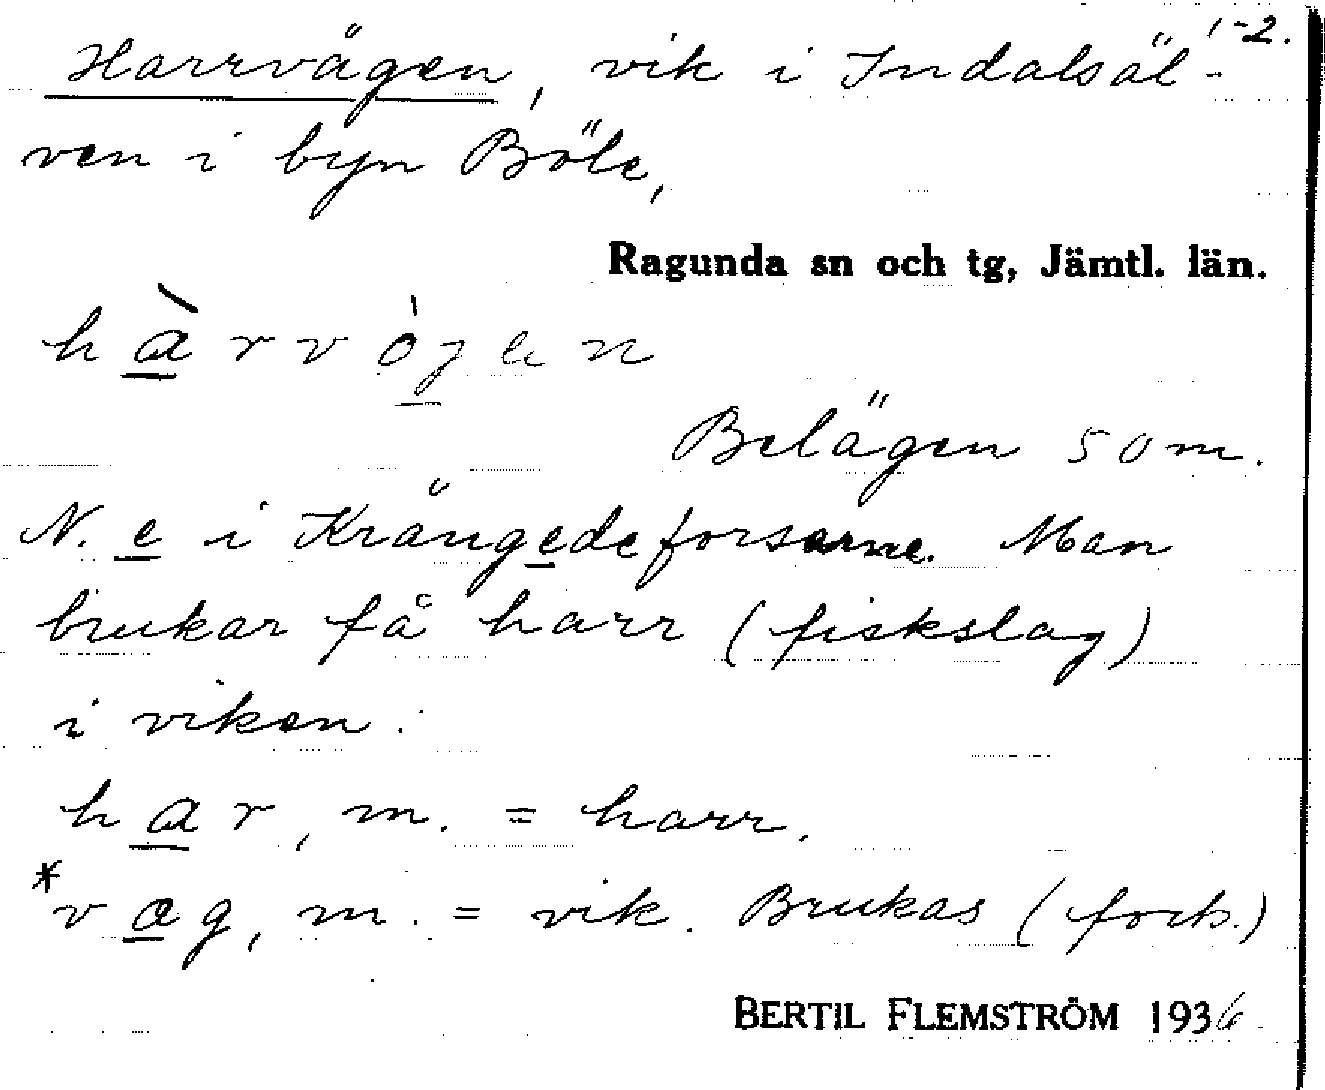 1-2.
Harrvägen, vik i Indalsäl-
ven i byn Böle,
Ragunda sn och tg, Jämtl. län.
hàrvójen
Belägen 50 m.
N. e i Krångedeforsarne. Man
brukar få harr (fiskslag)
i viken.
har, m. = harr.
*vag, m. = vik. Brukas (forts.)
BERTIL FLEMSTRÖM 1936